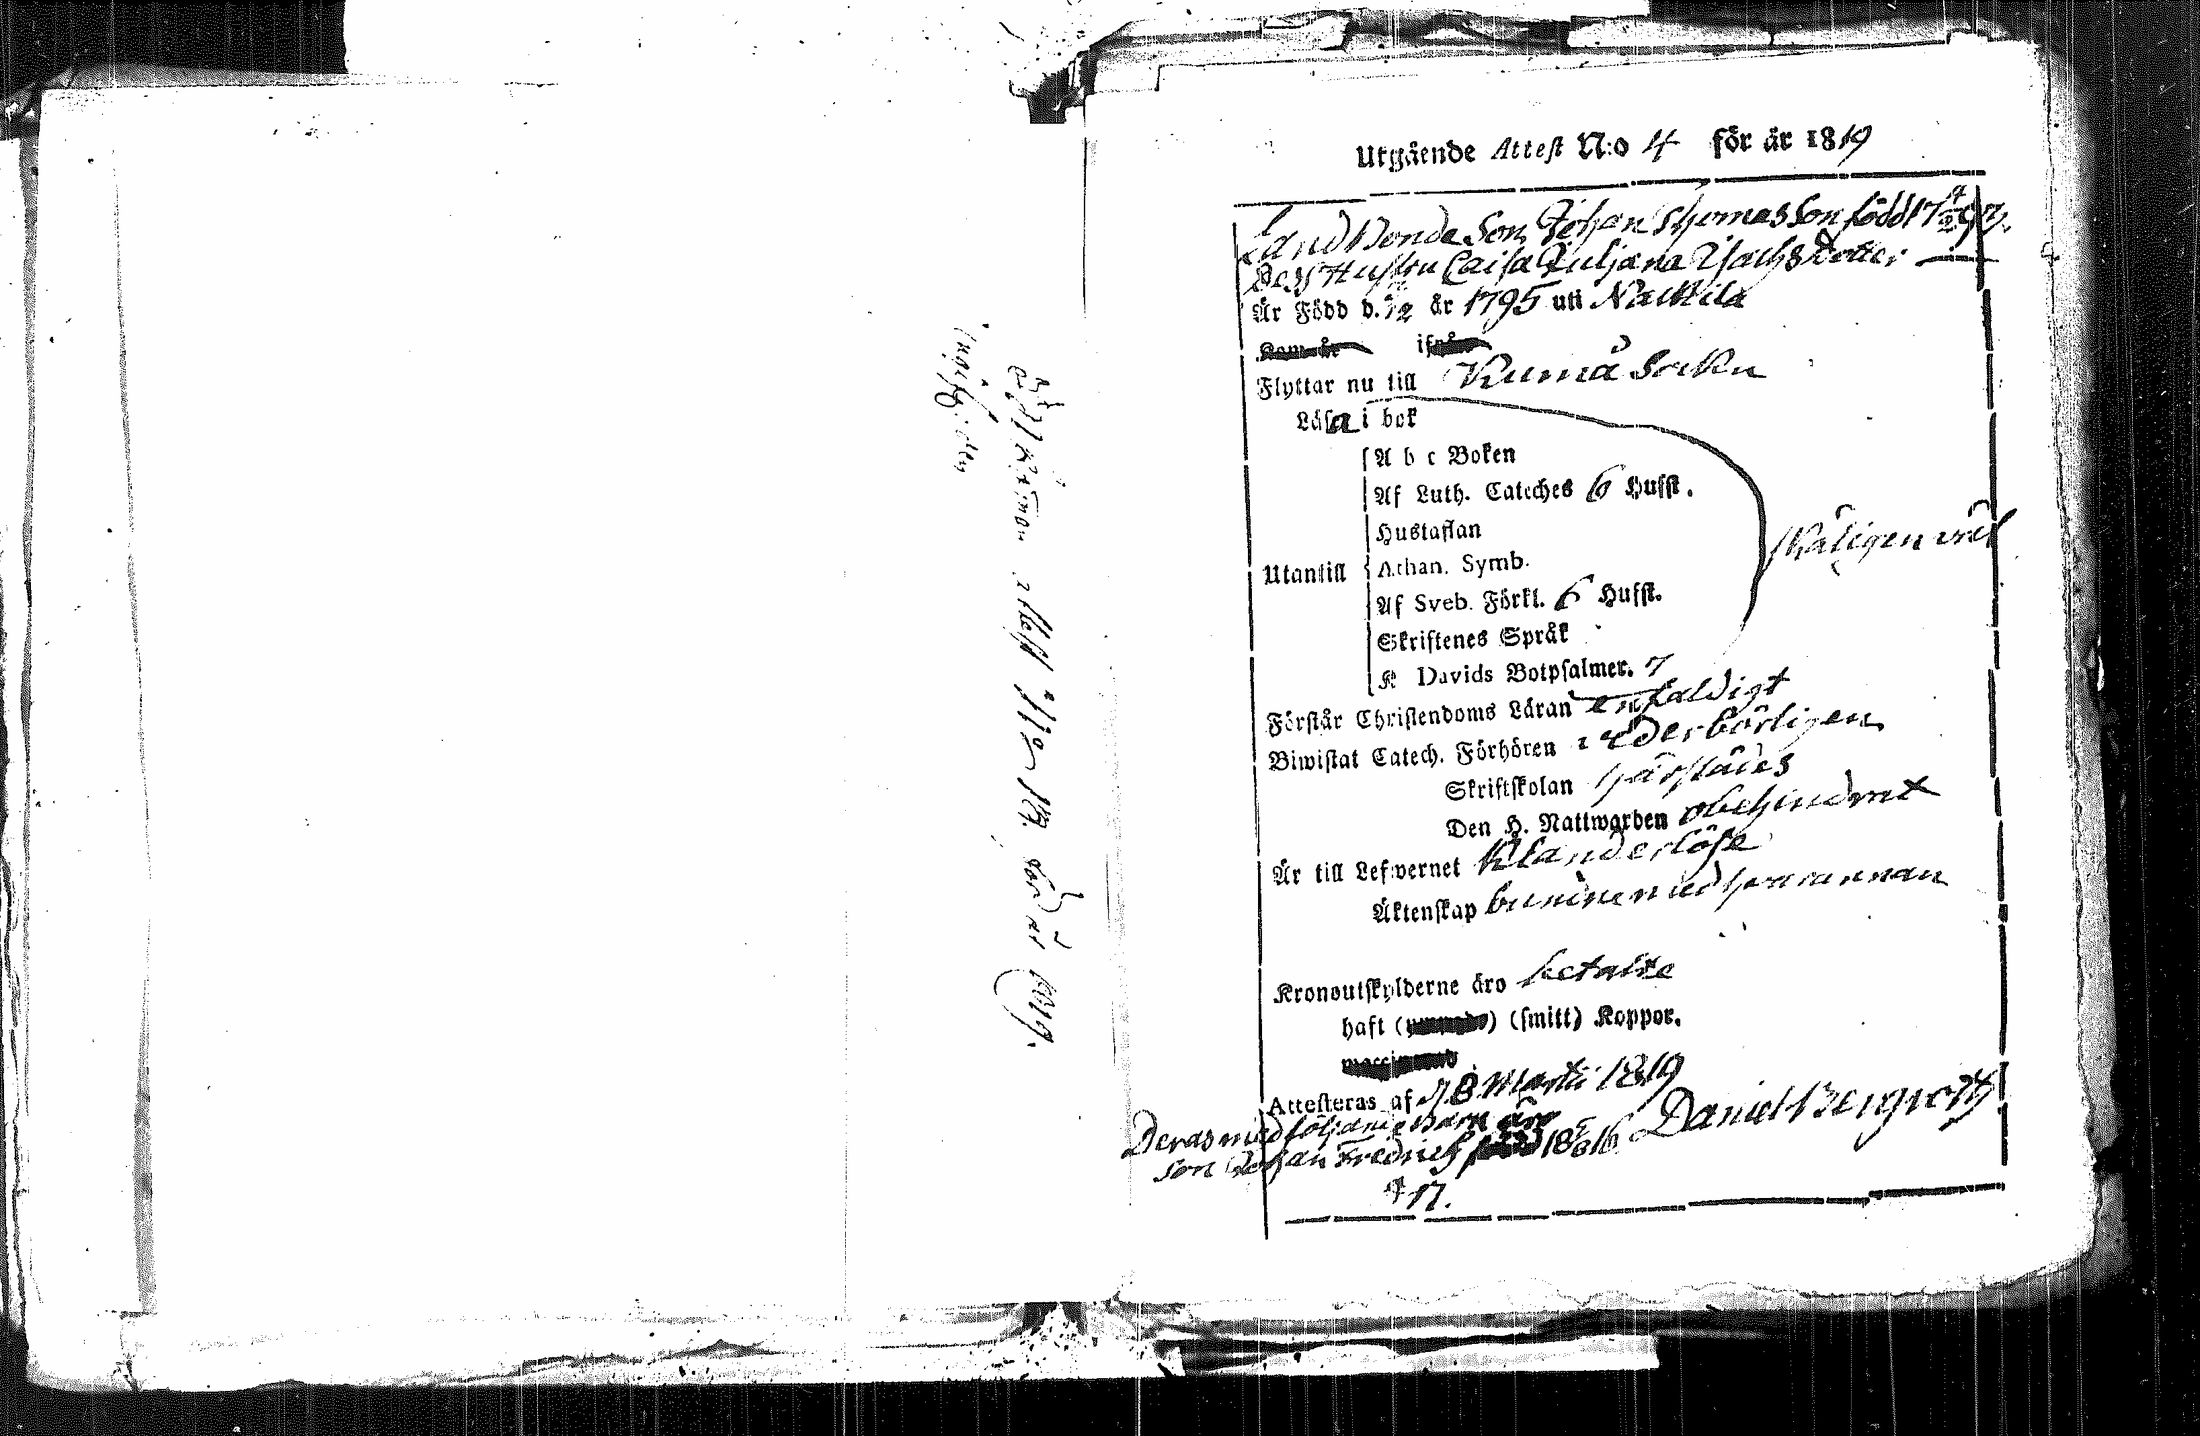 Utgående Attest N:o 4 för år 1819
Land Bonde Son Johan Thomasson född 17 4/2 93.
Des Hustru Caisa Juljana Isachsdotter —
Är Född d. /12 år 1795 uti Nackila
Kom år ifrån
Flyttar nu till Kumå Sockn
Läsa i bok
A b c Boken
Af Luth. Cateches 6 Hufst.
Hustaflan
Utantill Athan. Symb.
skäligen väl
Af Sveb. Förkl. 6 Hufst.
Skriftenes Språk
K Davids Botpsalmer. 7
Förstår Christendoms Läran enfaldigt
Biwistat Catech. Förhören vederbörligen
Skriftskolan härstädes
Den H. Nattwarden obehindrat
Är till Lefwernet Klanderlöse
Äktenskap bundne med hvarannan
Kronoutskylderne äro betalte
haft () (smitt) Koppor.
Attesteras af 18 Martii 1819
Deras medföljande Barn är
Daniel Bergroth
son Johan Fredrich född 18 5/6 16
17.